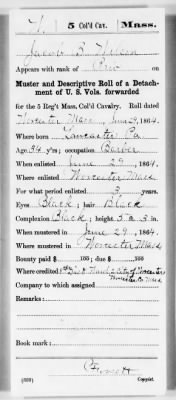 5 Col'd Cav. Mass.
Jacob B
Appears with rank of Priv on
Muster and Descriptive Roll of a Detach-
ment of U. S. Vols. forwarded
for the 5 Reg't Mass. Col'd Cavalry. Roll dated
Worcester Mass June 29, 1864.
Where born Lancaster Pa
Age 34 y'rs; occupation Barber
When enlisted June 29, 1864.
Where enlisted Worcester Mass
For what period enlisted 3 years.
Eyes Black; hair Black
Complexion Black; height 5 ft. 3 in.
When mustered in June 29, 1864.
Where mustered in Worcester Mass
Bounty paid $ 100; due $ 100
Where credited City of Worcester
Worcester Co Mass
Company to which assigned
Remarks:
Book mark:
(339) Copyist.